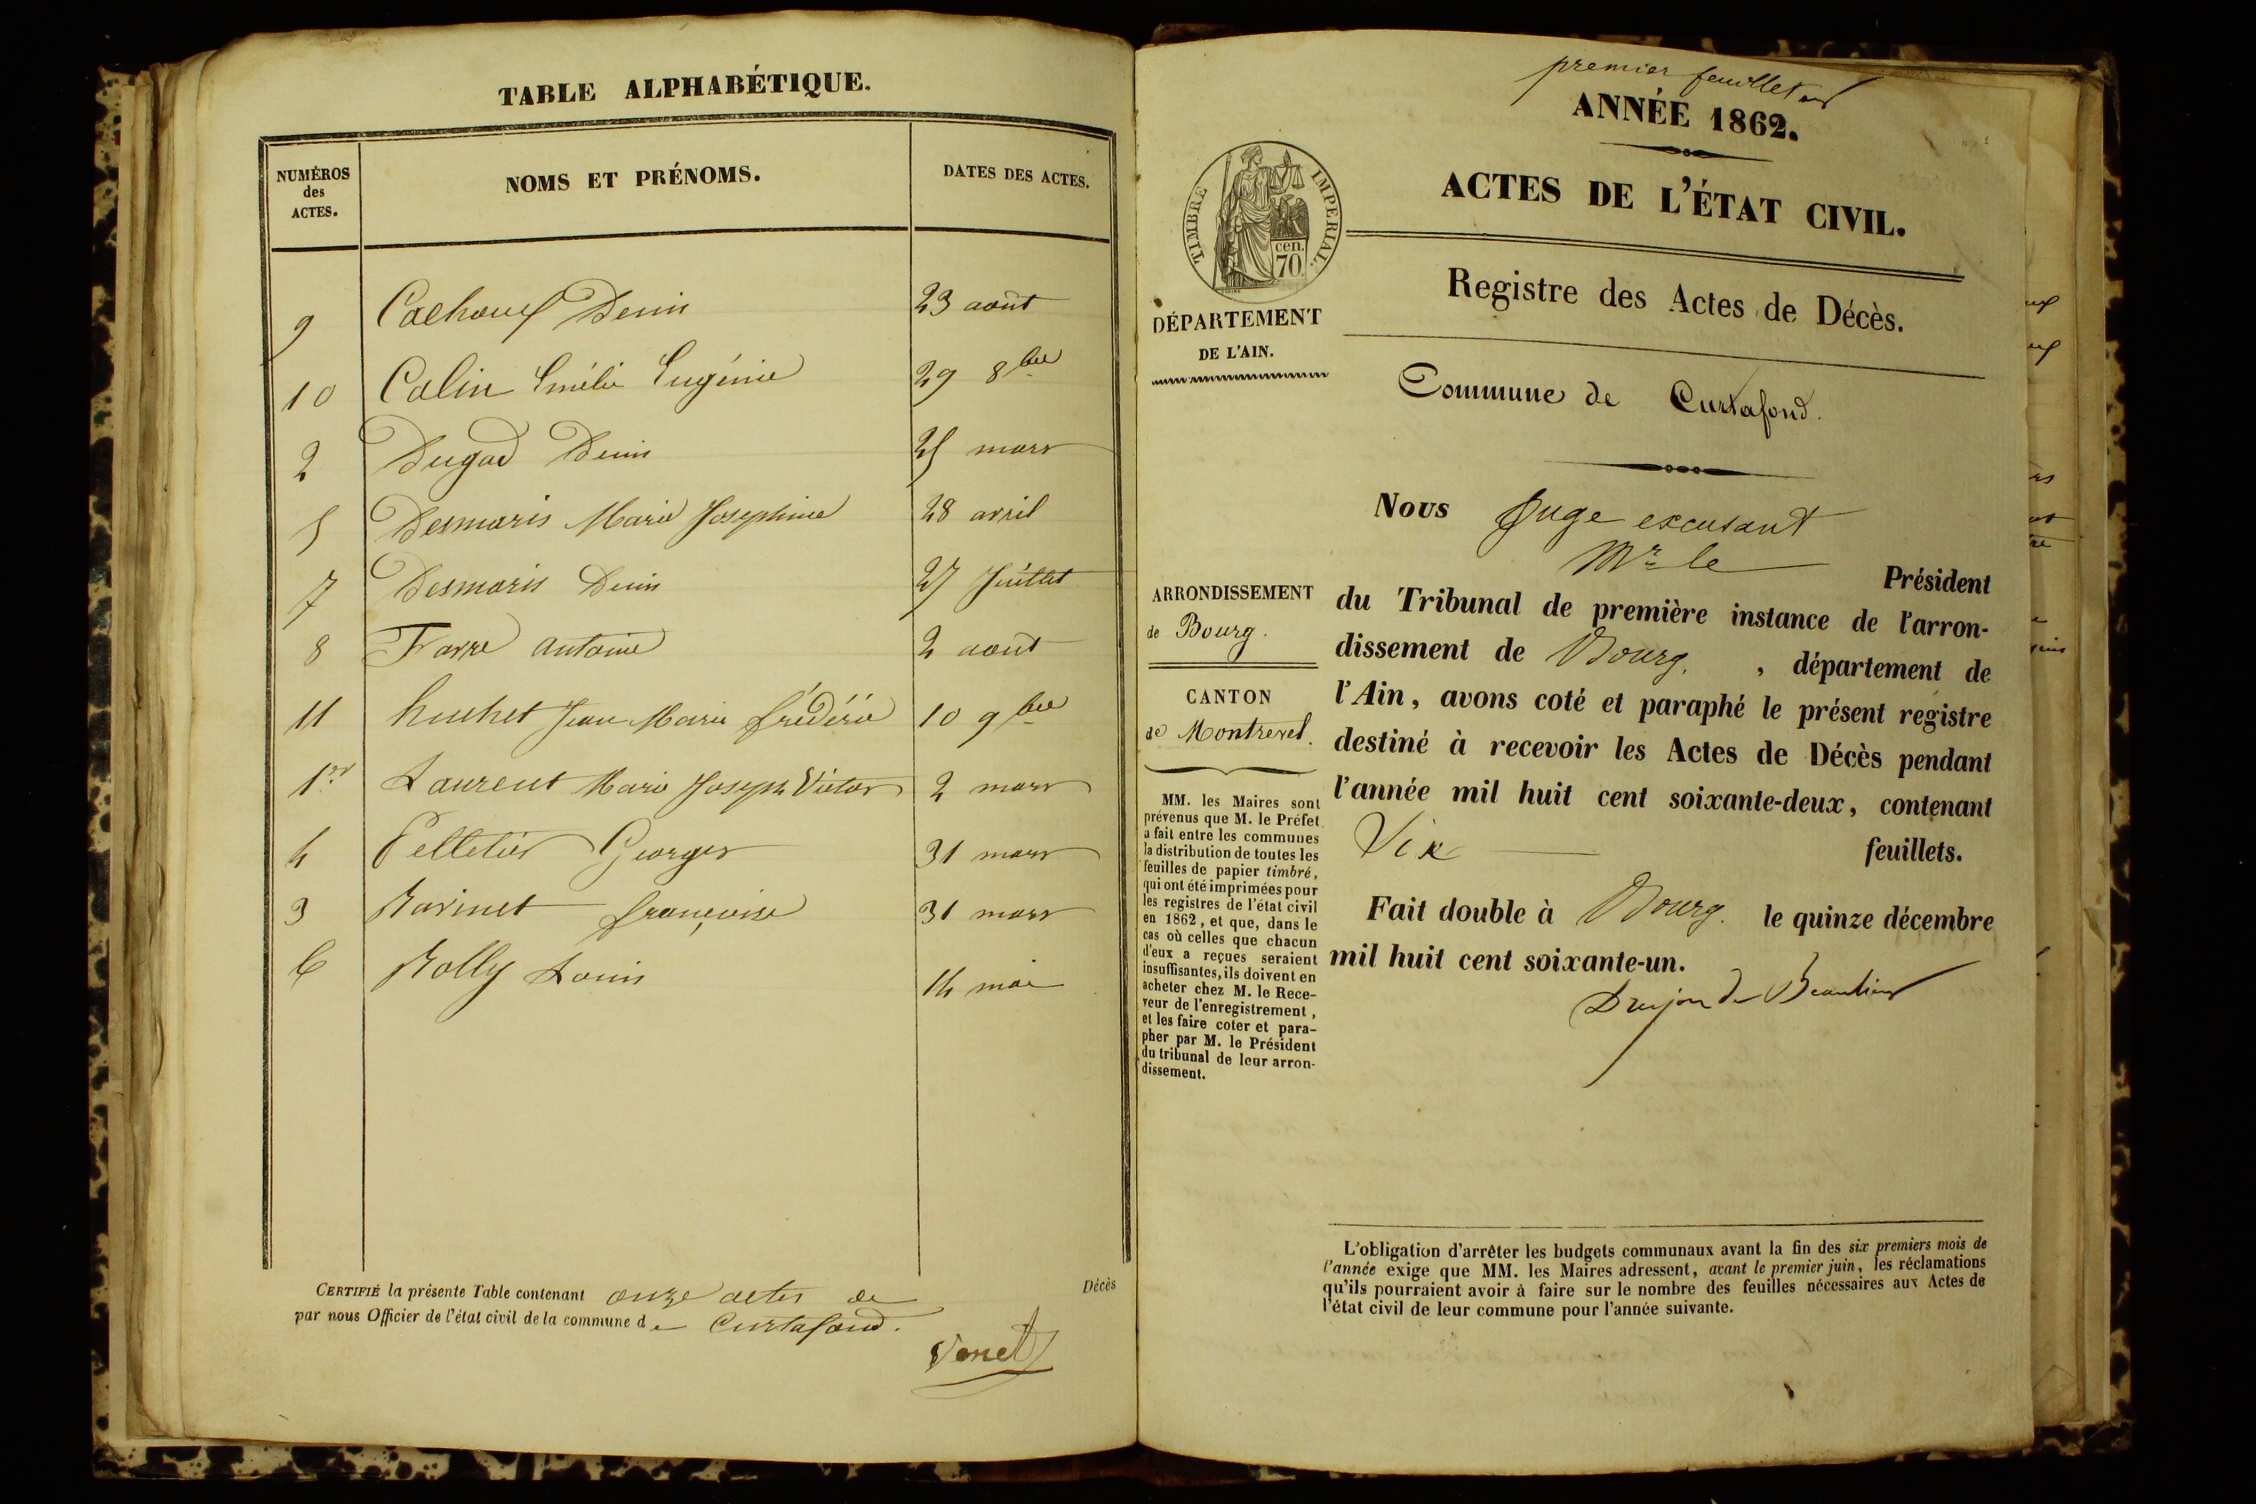 TABLE ALPHABÉTIQUE.
NUMÉROS des ACTES. NOMS ET PRÉNOMS. DATES DES ACTES.
9 Denis 23 août
10 Colin Emélie Eugénie 29 8bre
2 Dugad Denis 25 mars
5 Desmaris Marie Josephine 28 avril
7 Desmaris Denis 27 Juillet
8 Favre antoine 2 août
11 huchet Jean Marie frédéric 10 9bre
1er Laurent Marie Joseph Victor 2 mars
4 Pelletier Georges 31 mars
3 Ravinet françoise 31 mars
6 Rolly Louis 14 mai
CERTIFIÉ la présente Table contenant onze actes de Décès
par nous Officier de l'état civil de la commune de Curtafond.
premier feuillet
ANNÉE 1862.
ACTES DE L'ÉTAT CIVIL.
TIMBRE IMPERIAL.
cen.
70
Registre des Actes de Décès.
DÉPARTEMENT
DE L'AIN.
Commune de Curtafond.
Nous Juge excusant
Mr le Président
ARRONDISSEMENT
de Bourg.
CANTON
de Montrevel.
du Tribunal de première instance de l'arron-
dissement de Bourg, département de
l'Ain, avons coté et paraphé le présent registre
destiné à recevoir les Actes de Décès pendant
l'année mil huit cent soixante-deux, contenant
Six feuillets.
Fait double à Bourg. le quinze décembre
mil huit cent soixante-un.
Drujon de Beaulieu
MM. les Maires sont
prévenus que M. le Préfet
a fait entre les communes
la distribution de toutes les
feuilles de papier timbré,
qui ont été imprimées pour
les registres de l'état civil
en 1862, et que, dans le
cas où celles que chacun
d'eux a reçues seraient
insuffisantes, ils doivent en
acheter chez M. le Rece-
veur de l'enregistrement,
et les faire coter et para-
pher par M. le Président
du tribunal de leur arron-
dissement.
L'obligation d'arrêter les budgets communaux avant la fin des six premiers mois de
l'année exige que MM. les Maires adressent, avant le premier juin, les réclamations
qu'ils pourraient avoir à faire sur le nombre des feuilles nécessaires aux Actes de
l'état civil de leur commune pour l'année suivante.